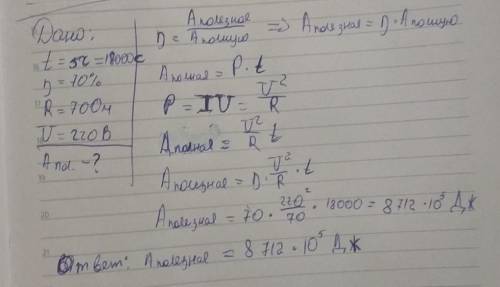 Дано:
t = 5ч = 18000с
η = 70%
R = 70 Ом
U = 220 В
Aпол. - ?
η = Aполезная / Aполную => Aполезная = η · Aполную
Aполная = P · t
P = IU = U² / R
Aполная = U² / R t
Aполезная = η · U² / R · t
Aполезная = 70 · 220² / 70 · 18000 = 8712 · 10⁵ Дж
Ответ: Aполезная = 8712 · 10⁵ Дж